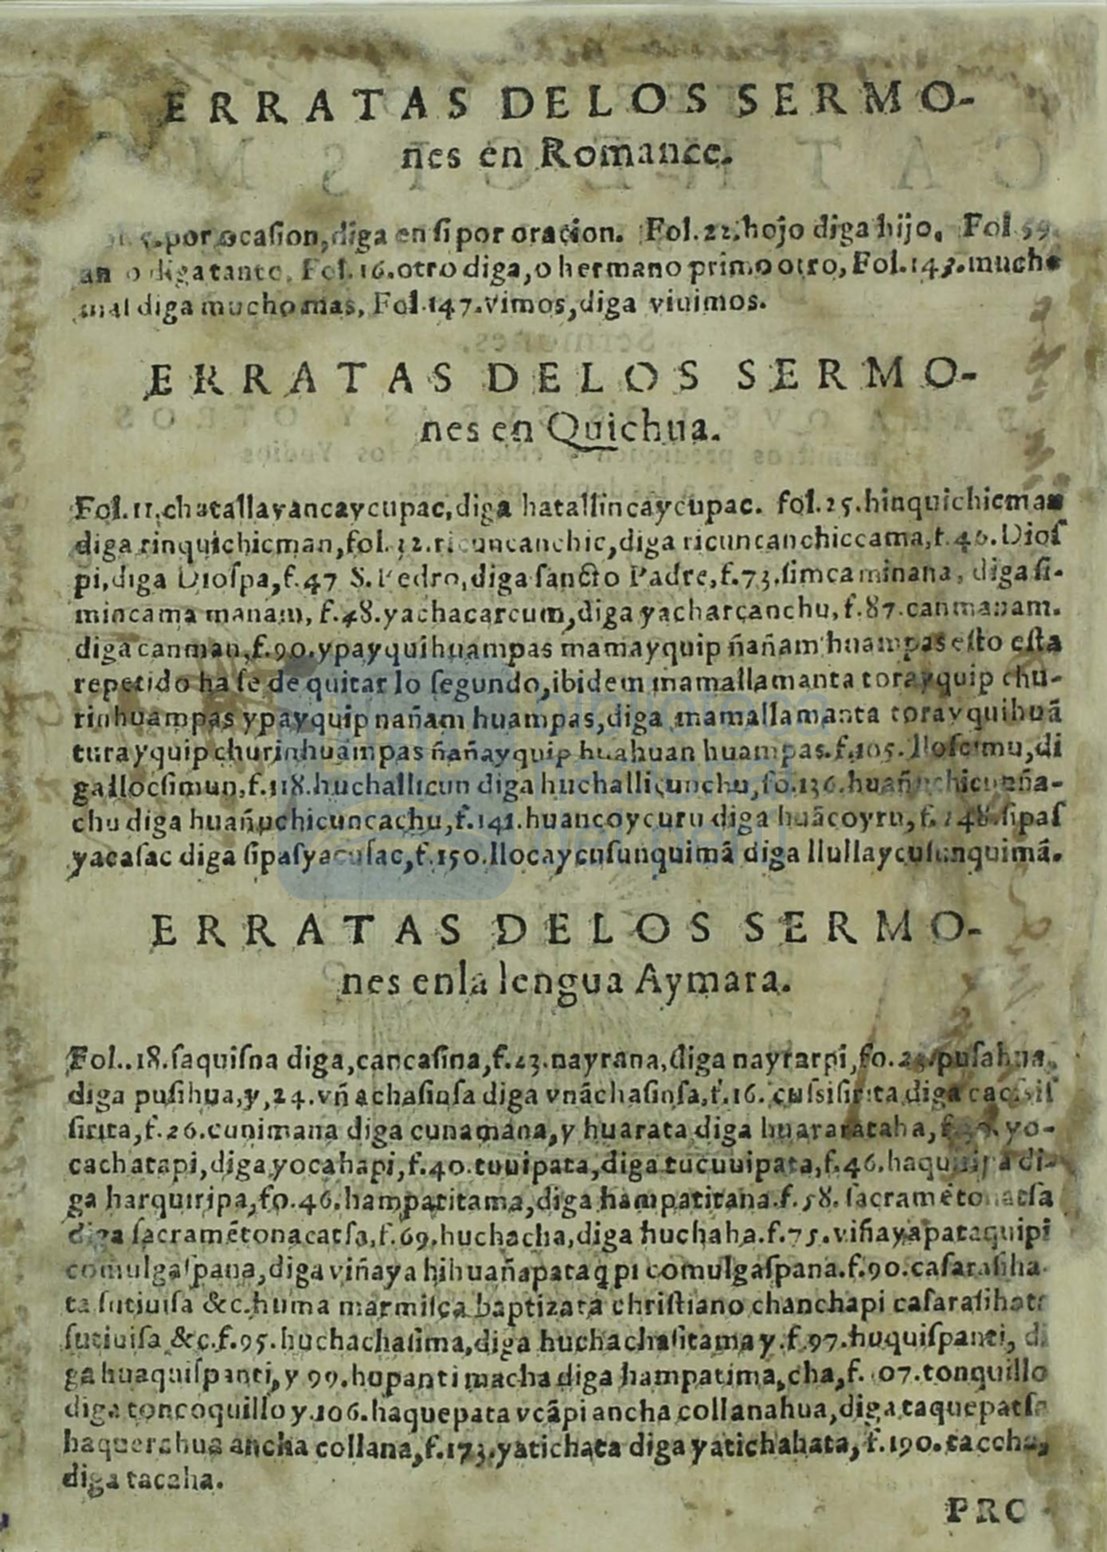 ERRATAS DELOS SERMO-
nes en Romance.
por ocaſion, diga en ſi por oracion. Fol. 22. hojo diga hijo. Fol 59.
diga tanto. Fol. 16. otro diga, o hermano primo otro, Fol. 143. mucho
mal diga mucho mas, Fol. 147. Vimos, diga viuimos.
ERRATAS DELOS SERMO-
nes en Quichua.
Fol. 11. chatallayancaycupac, diga hatallincaycupac. fol. 25. hinquichicman
diga rinquichicman, fol. 32. ricuncanchic, diga ricuncanchiccama, f. 40. Dioſ
pi, diga Dioſpa, f. 47 S. Pedro, diga ſancto Padre, f. 73. ſimcaminana, diga ſi-
mincama manam, f. 48. yachacarcum, diga yacharcanchu, f. 87. canmanam.
diga canman, f. 90. ypayquihuampas mamayquip ñañam huampas eſto eſta
repetido ha ſe de quitar lo ſegundo, ibidem mamallamanta torayquip chu-
rinhuampas ypayquip nañam huampas, diga mamallamanta torayquihuā
turayquip churinhuampas ñañayquip huahuan huampas. f. 105. lloſcimu, di
ga llocſimun, f. 118. huchallicun diga huchallicunchu, fo. 136.
chu diga huañuchicuncachu, f. 141. huancoycuru diga huācoyru, f. 148. ſipaſ
yacaſac diga ſipaſyacuſac, f. 150. llocaycuſunquimā diga llullaycuſunquimā.
ERRATAS DELOS SERMO-
nes enla lengua Aymara.
Fol.. 18. ſaquiſna diga, cancaſina, f. 23. nayrana, diga nayrarpi, fo. 24. puſahua,
diga puſihua, y, 24. vñachaſinſa diga vnāchaſinſa, f. 16. cuſsiſirita diga
ſirita, f. 26. cunimana diga cunamana, y huarata diga huararataha, yo-
cachatapi, diga yocahapi, f. 40. tuuipata, diga tucuuipata, f. 46. di-
ga harquiripa, fo. 46. hampatitama, diga hampatitana. f. 58. ſacramēto
diga ſacramētonacatſa, f. 69. huchacha, diga huchaha. f. 75. viñayapataquipi
comulgaſpana, diga viñaya hihuañapataq̄pi comulgaſpana. f. 90. caſaraſiha
ta ſutiuiſa &c. huma marmiſca baptizata chriſtiano chanchapi caſaraſihata
ſutiuiſa &c. f. 95. huchachaſima, diga huchachaſitama y. f. 97. huquiſpanti, di
ga huaquiſpanti, y 99. hupantimacha diga hampatima, cha, f. 107. tonquillo
diga toncoquillo y. 106. haquepata vcāpi ancha collanahua, diga, taquepatſa
haquerahua ancha collana, f. 173. yatichata diga yatichahata, f. 190. taccha,
diga tacaha.
PRO